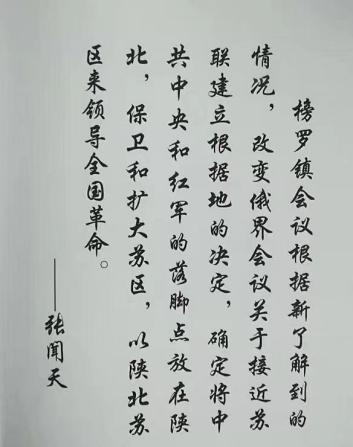 榜罗镇会议根据新了解到的
情况，改变俄界会议关于接近苏
联建立根据地的决定，确定将中
共中央和红军的落脚点放在陕
北，保卫和扩大苏区，以陕北苏
区来领导全国革命。
——张闻天